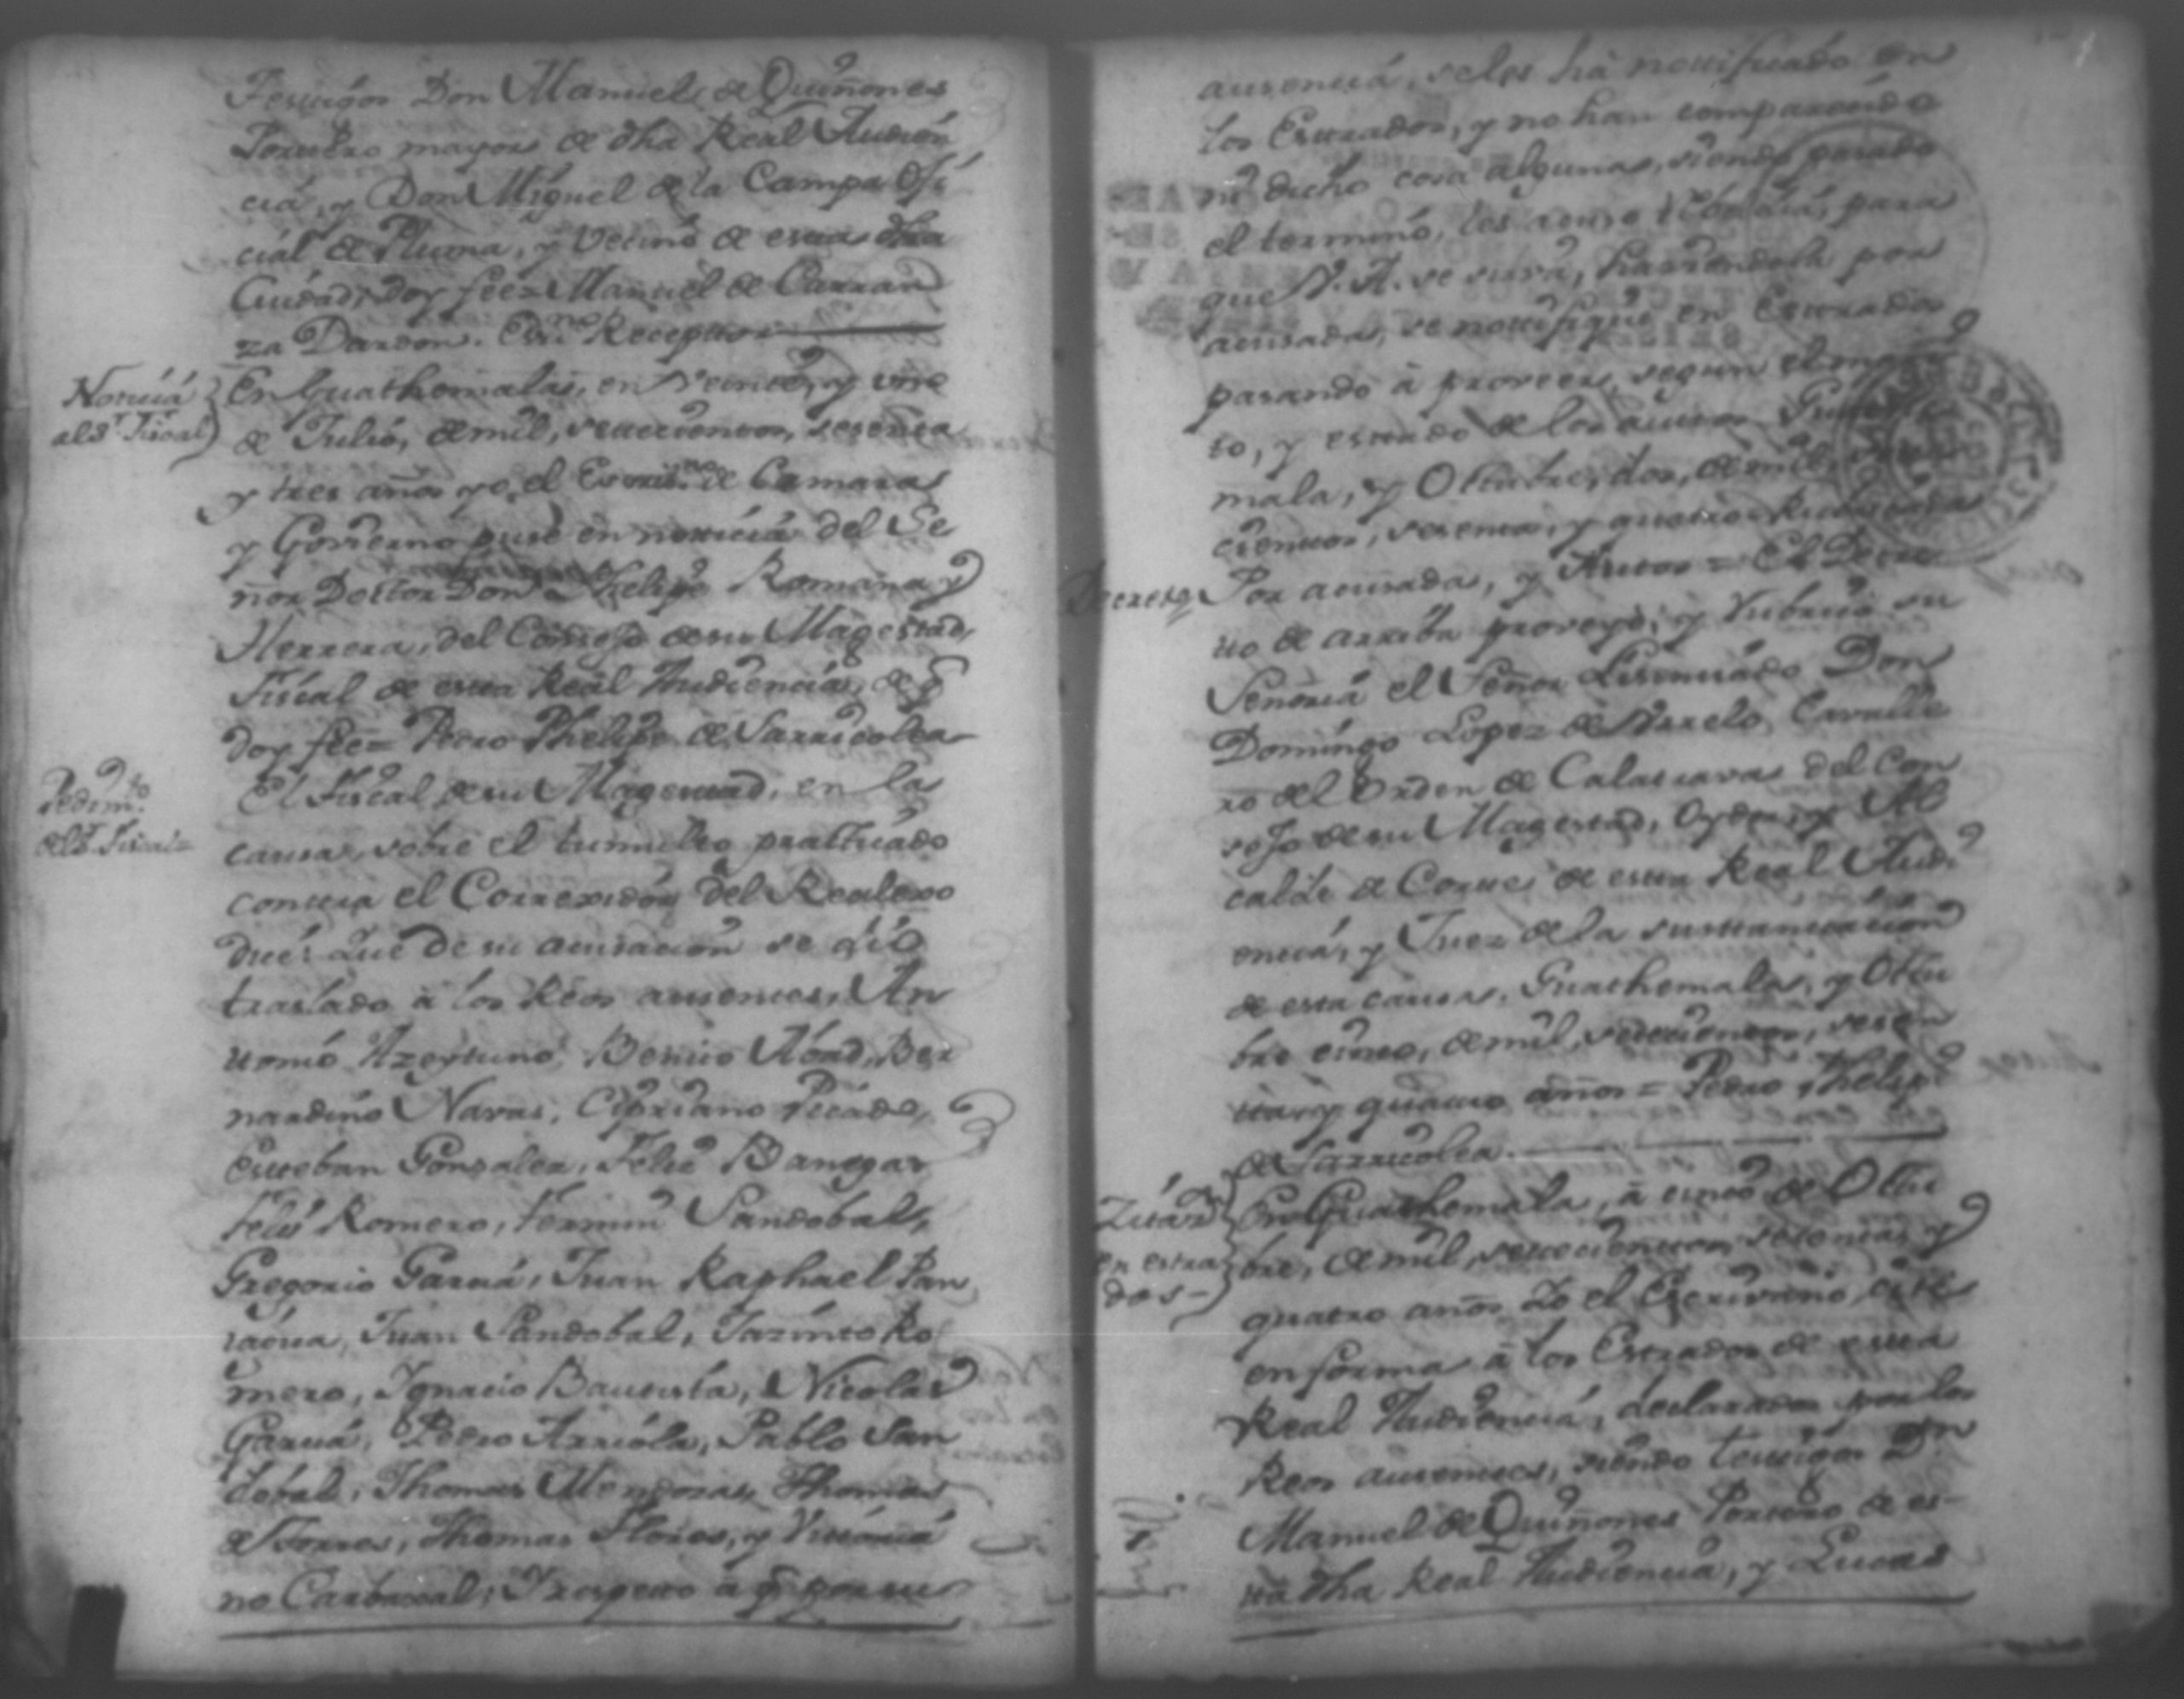 Testigos Don Manuel de Quiñones
Portero mayor de dha Real Audien
cia, y Don Miguel de la Campa Ofi
cial de Pluma, y Vecino de esta dha
Ciudad, doy fee= Manuel de Carran
za Dardon. Essno. Receptor
Noticia
al Sr. Fiscal
En Guathemala, en veinte, y uno
de Julio, de mil, setecientos, sesenta
y tres años yo el Escrivno. de Camara
y Govierno puse en noticia del Se
ñor Doctor Don Phelipe Romana y
Herrera, del Consejo de su Magestad,
Fiscal de esta Real Audiencia, de q
doy fee= Pedro Phelipe de Sarricolea
Pedimto.
del Sr. Fiscal=
El Fiscal de su Magestad, en la
causa, sobre el tumulto practicado
contra el Correxidor del Realexo
dice: Que de su acusacion se dió
traslado à los Reos ausentes, An
tonio Azeytuno, Benito Abad, Ber
nardino Navas, Cipriano Picado,
Esteban Gonzalez, Felis Banegas
Felis Romero, Fermin Sandobal,
Gregorio Garcia, Juan Raphael Pan
iagua, Juan Sandobal, Jazinto Ro
mero, Ignacio Bautista, Nicolas
Garcia, Pedro Arriola, Pablo San
dobal, Thomas Mendoza, Thomas
de Torres, Thomas Flores, y Victoria
no Carbaxal; Y respecto a q por su
ausencia, se les hà notificado en
los Estrados, y no han comparecido
ni dicho cosa alguna, siendo pasado
el termino, les acuso rebeldia, para
que V. A. se sirva, haviendola por
acusada, se notifique en Estrados
pasando à proveer, segun el meri
to, y estado de los autos. Guathe
mala, y Octubre, dos, de mil, sete
cientos, sesenta, y quatro=
Decreto
Por acusada, y Autos = El Decre
to de arriba proveyó, y rubricó su
Señoria el Señor Lisenciado Don
Domingo Lopez de Urrelo, Cavalle
ro del Orden de Calatrava del Con
sejo de su Magestad, Oydor, y Al
calde de Corte de esta Real Audi
encia, y Juez de la sustanciacion
de esta causa. Guathemala, y Octu
bre cinco, de mil, setecientos, sesen
ta, y quatro años = Pedro Phelipe
de Sarricolea.
Zitazn
en estra
dos-
En Guathemala, à cinco de Octu
bre, de mil, setecientos sesenta, y
quatro años Yo el Escrivano, cité
en forma à los Estrados de esta
Real Audiencia, declarados por los
Reos ausentes, siendo testigos Dn
Manuel de Quiñones Portero de es-
ta dha Real Audiencia, y Lucas